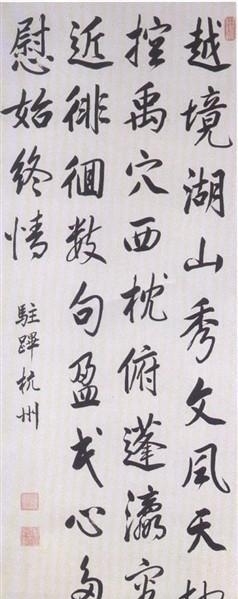 越境湖山秀文風天
控禹穴西枕俯蓬瀛
近徘徊數句盈心多
慰始終情
駐蹕杭州